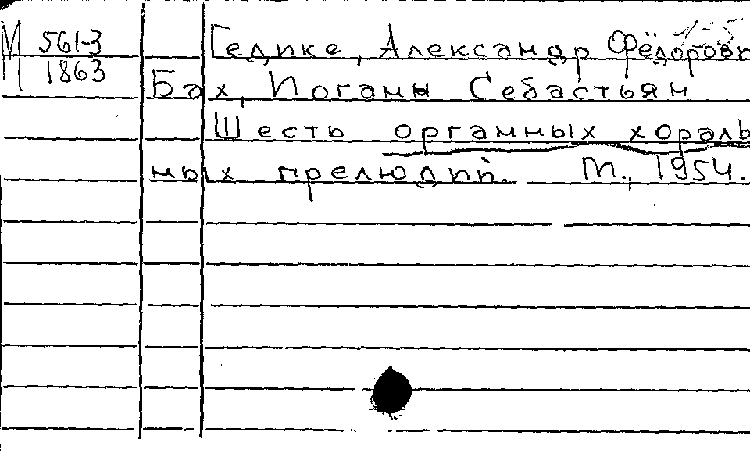 М 561-3 Гедике, Александр Фёдоров
1863
Бах, Иоганн Себастьян
Шесть органных хораль
ных прелюдий. М., 1954.